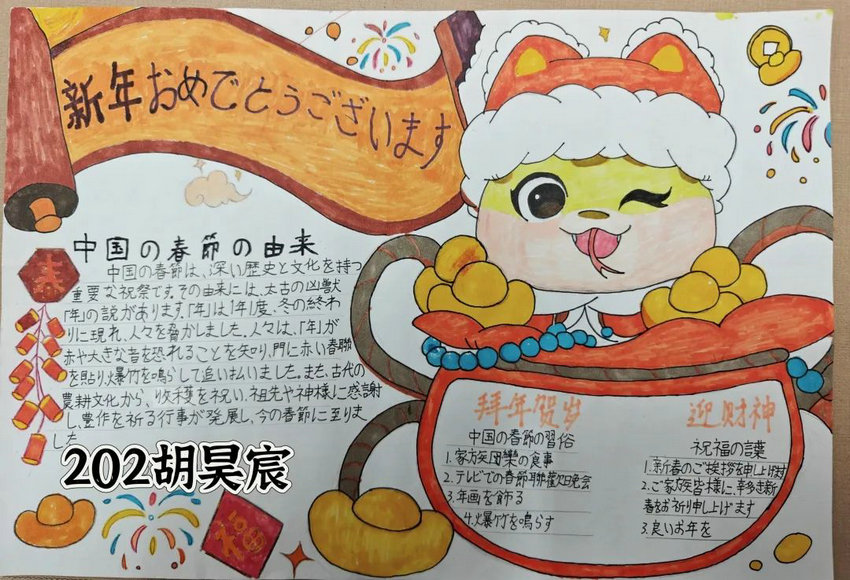 新年おめでとうございます
中国の春節の由来
春
中国の春節は、深い歴史と文化を持つ
重要な祝祭です。その由来には、太古の凶獣
「年」の説があります。「年」は1年1度、冬の終わ
りに現れ、人々を脅かしました。人々は、「年」が
赤や大きな音を恐れることを知り、門に赤い春聯
を貼り、爆竹を鳴らして追い払いました。また、古代の
農耕文化から、收穫を祝い、祖先や神様に感謝
し、豊作を祈る行事が発展し、今の春節に至りま
した
202胡昊宸
福
拜年贺岁
中国の春節の習俗
1.家族団欒の食事
2.テレビでの春節聯歓晩会
3.年画を飾る
4.爆竹を鳴らす
迎财神
祝福の葉
1.新春のご挨拶を申し上げます
2.ご家族皆様に、幸多き新
春をお祈り申し上げます
3.良いお年を